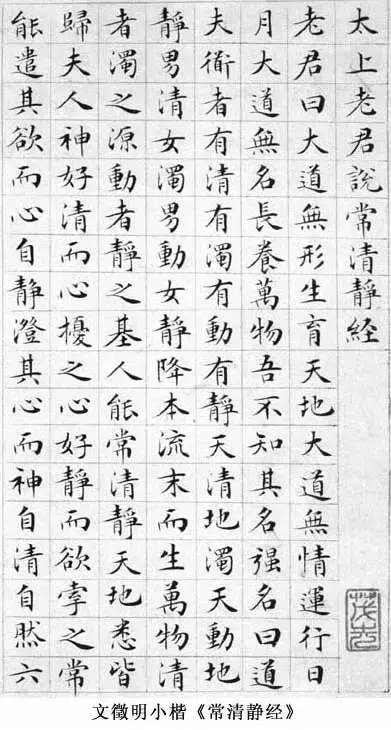 太上老君說常清靜経
老君曰大道無形生育天地大道無情運行日
月大道無名長養萬物吾不知其名强名曰道
夫衜者有清有濁有動有靜天清地濁天動地
靜男清女濁男動女靜降本流末而生萬物清
者濁之源動者靜之基人能常清靜天地悉皆
歸夫人神好清而心擾之心好靜而欲牽之常
能遣其欲而心自静澄其心而神自清自然六
文徵明小楷《常清静经》